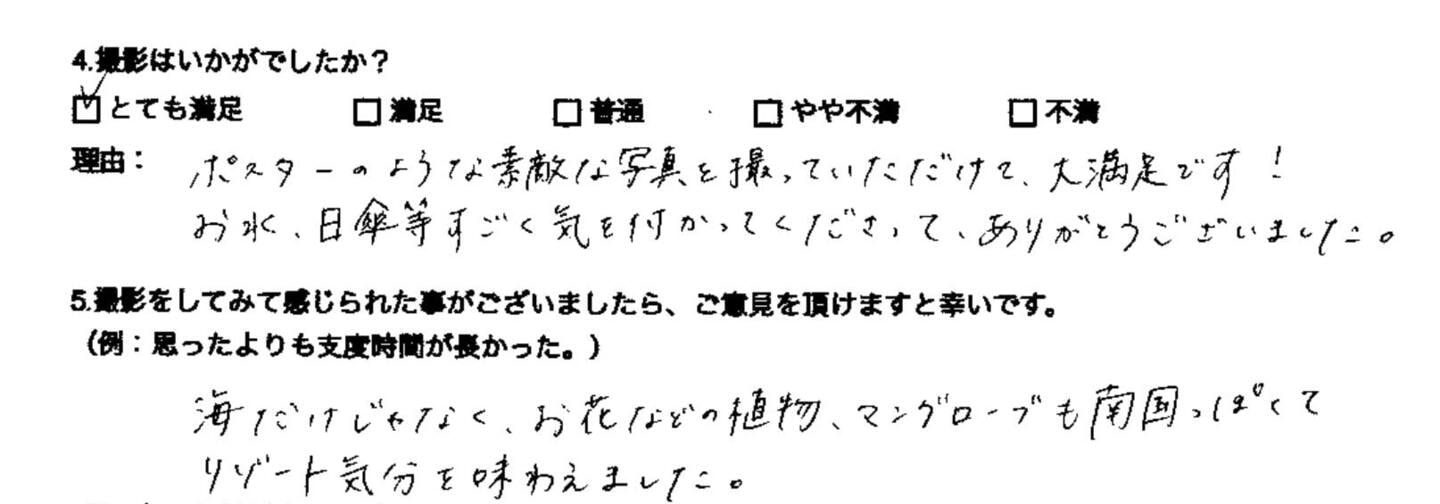 4.撮影はいかがでしたか？
☑とても満足 □満足 □普通 □やや不満 □不満
理由： ポスターのような素敵な写真を撮っていただけて、大満足です！
お水、日傘等すごく気を付かってくださって、ありがとうございました。
5.撮影をしてみて感じられた事がございましたら、ご意見を頂けますと幸いです。
（例：思ったよりも支度時間が長かった。）
海だけじゃなく、お花などの植物、マングローブも南国っぽくて
リゾート気分を味わえました。